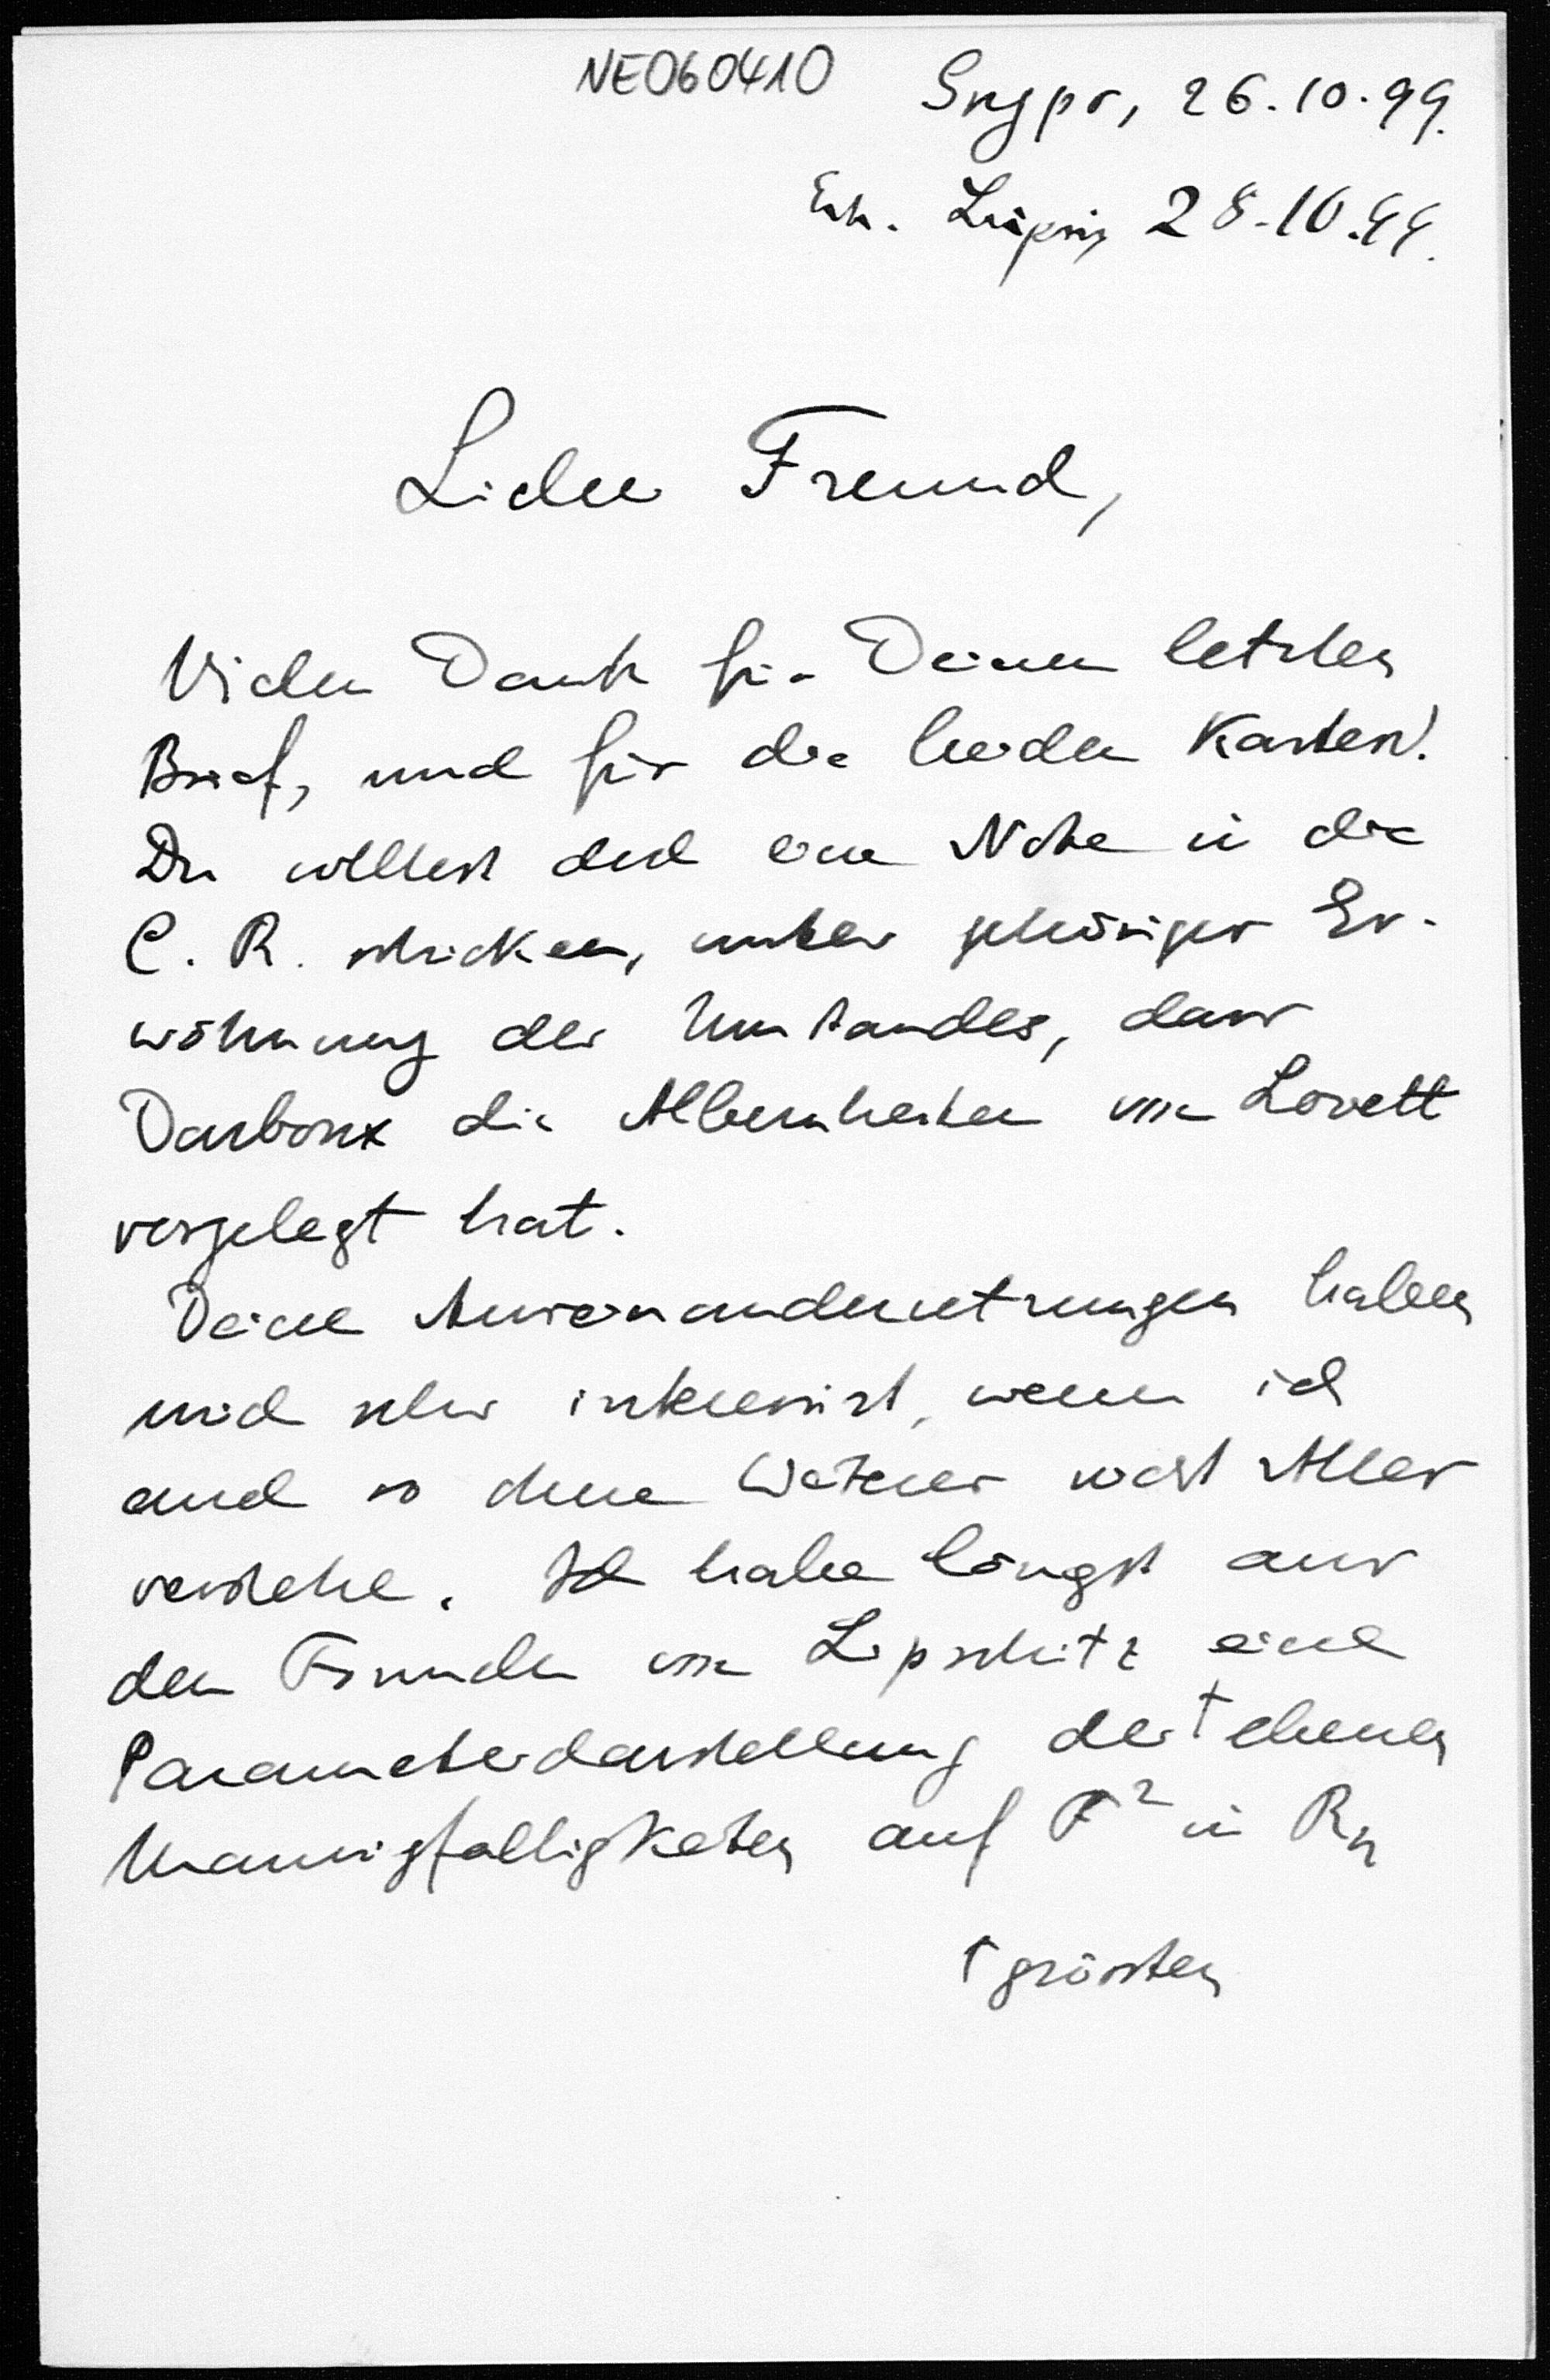 NE060410
26.10.99.
Leipzig 28.10.99.
Lieber Freund,
Vielen Dank für Deinen letzten
Brief, und für die beiden Karten!
Du solltest doch eine Note in die
C. R. schicken, unter gehöriger Er-
wähnung des Umstandes, dass
Darboux die Albernheiten von Lovett
vorgelegt hat.
Deine Auseinandersetzungen haben
mich sehr interessirt, wenn ich
auch so ohne Weiteres nicht Alles
verstehe. Ich habe längst aus
den Formeln von Lipschitz eine
Parameterdarstellung der † ebenen
Mannigfaltigkeiten auf F² in Rn
† grössten